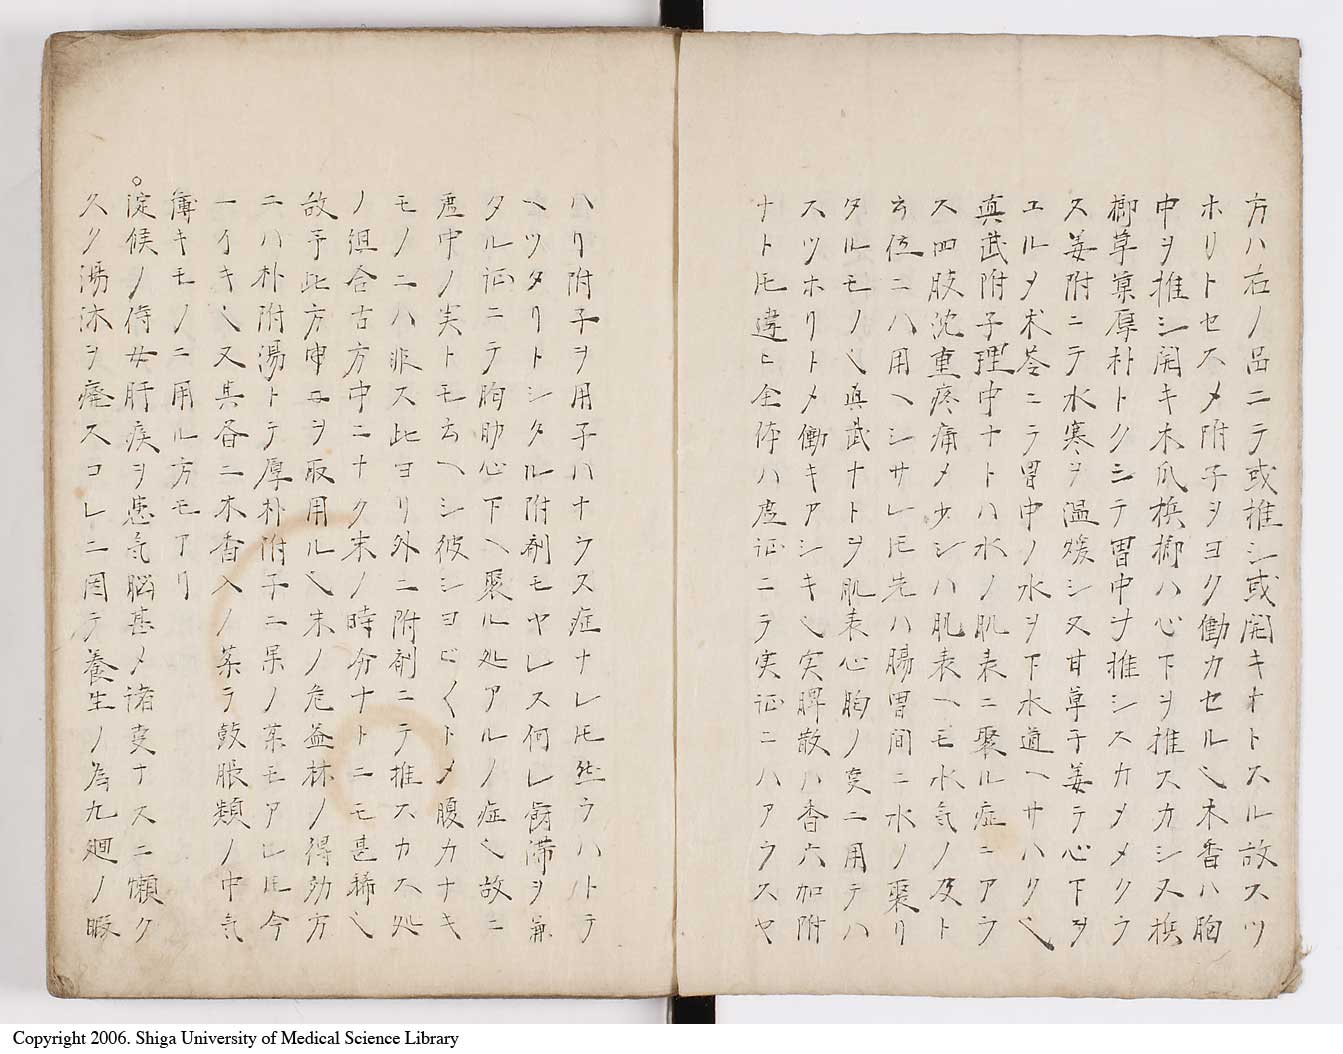 方ハ右ノ品ニテ或推シ或開キナトスル故スツ
ホリトセスメ附子ヨク働カセル乀木香ハ胸
中ヲ推シ開キ木瓜梹榔ハ心下ヲ推スカシ又梹
榔草菓厚朴トクミテ胃中ヲ推シスカメメクラ
ス姜附ニテ水寒ヲ温煖シ又甘草干姜テ心下ヲ
ユルメ朮苓ニテ胃中ノ水ヲ下水道ヘサハク乀
真武附子理中ナトハ水ノ肌表ニ聚ル症ニアラ
ス四肢沈重疼痛メ少シハ肌表ヘモ水気ノ及ト
云位ニハ用ヘシサレ𪜈先ハ腸胃間ニ水ノ聚リ
タルモノ乀真武ナトヲ肌表心胸ノ変ニ用テハ
スツホリトメ働キアシキ乀実脾散ハ香六加附
ナト𪜈違ヒ全体ハ虚証ニテ実証ニハアラスヤ
ハリ附子ヲ用子ハナラス症ナレ𪜈然ラハトテ
ヘツタリトシタル附剤モヤレス何レ欝滞ヲ兼
タル証ニテ胸肋心下ヘ聚ル処アルノ症乀故ニ
虚中ノ実トモ云ヘシ彼シヨビ〱トメ腹カナキ
モノニハ非ス此ヨリ外ニ附剤ニテ推スカス処
ノ組合古方中ニナク宋ノ時分ナトニモ甚稀乀
故予此方ヲ取用ル乀宋ノ危益林ノ得効方
ニハ朴附湯トテ厚朴附子ニ杲ノ薬モアレ𪜈今
一イキ乀又其昔ニ木香入ノ薬テ鼓脹類ノ中気
薄キモノニ用ル方モアリ
○淀候ノ侍女肝疾ヲ患気脳甚メ諸変ナスニ懶ク
久ク湯沐ヲ廃スコレニ因テ養生ノ為九廻ノ暇
Copyright 2006. Shiga University of Medical Science Library